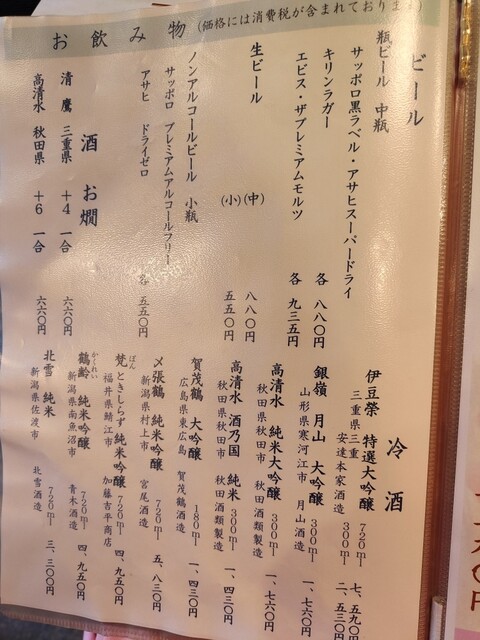 お飲み物（価格には消費税が含まれております）
ビール
瓶ビール 中瓶
サッポロ黒ラベル・アサヒスーパードライ
キリンラガー 各 八八〇円
エビス・ザプレミアムモルツ 各 九三五円
生ビール （中） 八八〇円
（小） 五五〇円
ノンアルコールビール 小瓶
サッポロ プレミアムアルコールフリー
アサヒ ドライゼロ 各 五五〇円
酒 お燗
清鷹 三重県 ＋４ 一合 六六〇円
高清水 秋田県 ＋６ 一合 六六〇円
冷酒
伊豆榮 特選大吟醸 720ml 七、五九〇円
三重県三重 安達本家酒造 300ml 二、五三〇円
銀嶺月山 大吟醸 300ml 一、七六〇円
山形県寒河江市 月山酒造
高清水 純米大吟醸 300ml 一、七六〇円
秋田県秋田市 秋田酒類製造
高清水 酒乃国 純米 300ml 一、四三〇円
秋田県秋田市 秋田酒類製造
賀茂鶴 大吟醸 180ml 一、四三〇円
広島県東広島 賀茂鶴酒造
〆張鶴 純米吟醸 720ml 五、八三〇円
新潟県村上市 宮尾酒造
梵 ときしらず 純米吟醸 720ml 四、九五〇円
ぼん
福井県鯖江市 加藤吉平商店
鶴齢 純米吟醸 720ml 四、九五〇円
かくれい
新潟県南魚沼市 青木酒造
北雪 純米 720ml 三、三〇〇円
新潟県佐渡市 北雪酒造